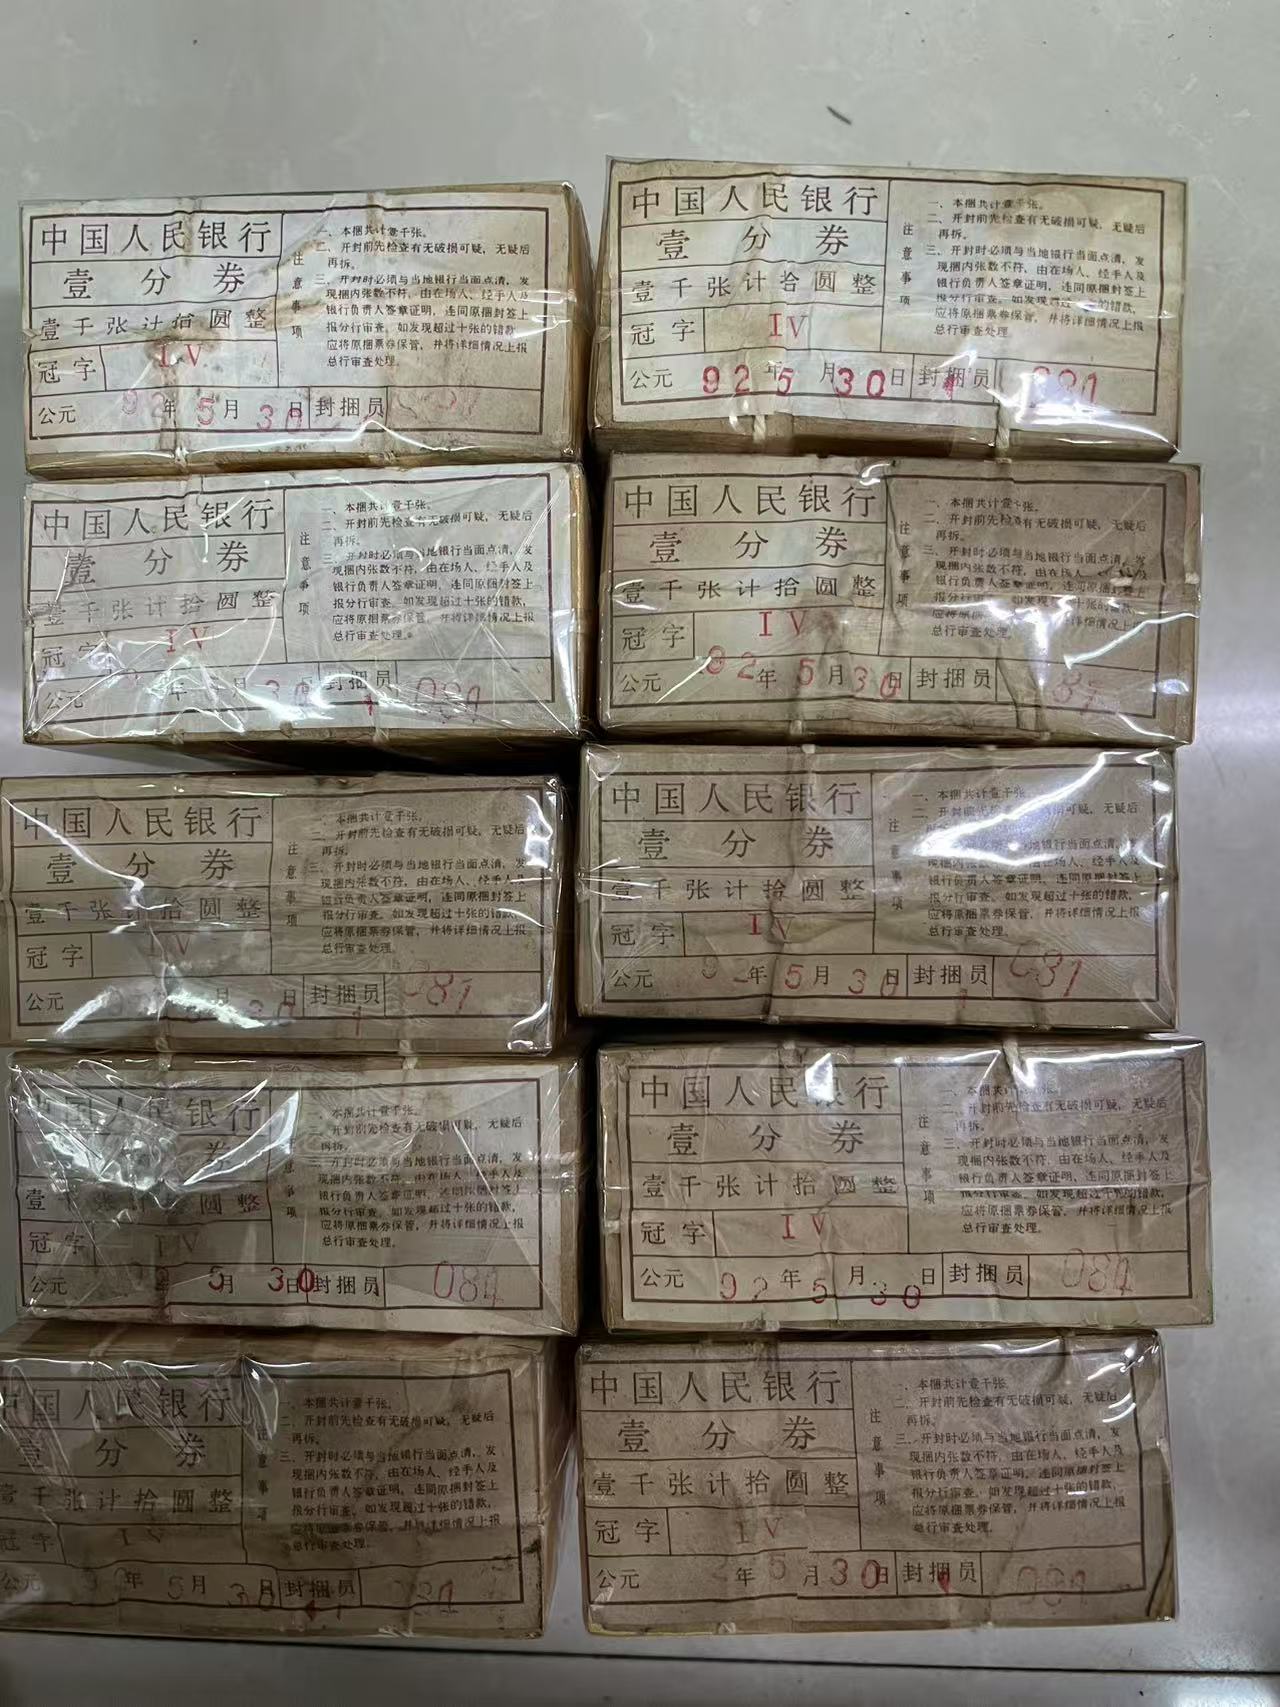 中国人民银行
壹分券
壹千张计拾圆整
冠字 IV
公元 92年5月30日 封捆员
注意事项
一、本捆共计壹千张。
二、开封前先检查有无破损可疑，无疑后
再拆。
三、开封时必须与当地银行当面点清，发
现捆内张数不符，由在场人、经手人及
银行负责人签章证明，连同原捆封签上
报分行审查。如发现超过十张的错款，
应将原捆票券保管，并将详细情况上报
总行审查处理。
中国人民银行
壹分券
壹千张计拾圆整
冠字 IV
公元 92年5月30日 封捆员 081
注意事项
一、本捆共计壹千张。
二、开封前先检查有无破损可疑，无疑后
再拆。
三、开封时必须与当地银行当面点清，发
现捆内张数不符，由在场人、经手人及
银行负责人签章证明，连同原捆封签上
报分行审查。如发现超过十张的错款，
应将原捆票券保管，并将详细情况上报
总行审查处理。
中国人民银行
壹分券
壹千张计拾圆整
冠字 IV
公元 年 月30日 封捆员 081
注意事项
一、本捆共计壹千张。
二、开封前先检查有无破损可疑，无疑后
再拆。
三、开封时必须与当地银行当面点清，发
现捆内张数不符，由在场人、经手人及
银行负责人签章证明，连同原捆封签上
报分行审查。如发现超过十张的错款，
应将原捆票券保管，并将详细情况上报
总行审查处理。
中国人民银行
壹分券
壹千张计拾圆整
冠字 IV
公元 92年5月30日 封捆员 81
注意事项
一、本捆共计壹千张。
二、开封前先检查有无破损可疑，无疑后
再拆。
三、开封时必须与当地银行当面点清，发
现捆内张数不符，由在场人、经手人及
银行负责人签章证明，连同原捆封签上
报分行审查。如发现超过十张的错款，
应将原捆票券保管，并将详细情况上报
总行审查处理。
中国人民银行
壹分券
壹千张计拾圆整
冠字 IV
公元 月30日 封捆员 081
注意事项
一、本捆共计壹千张。
二、开封前先检查有无破损可疑，无疑后
再拆。
三、开封时必须与当地银行当面点清，发
现捆内张数不符，由在场人、经手人及
银行负责人签章证明，连同原捆封签上
报分行审查。如发现超过十张的错款，
应将原捆票券保管，并将详细情况上报
总行审查处理。
中国人民银行
壹分券
壹千张计拾圆整
冠字 IV
公元 92年5月30日 封捆员 081
注意事项
一、本捆共计壹千张。
二、开封前先检查有无破损可疑，无疑后
再拆。
三、开封时必须与当地银行当面点清，发
现捆内张数不符，由在场人、经手人及
银行负责人签章证明，连同原捆封签上
报分行审查。如发现超过十张的错款，
应将原捆票券保管，并将详细情况上报
总行审查处理。
国人民银行
券
壹千张计拾圆整
冠字 IV
公元 92 5月30日 封捆员 081
意事项
一、本捆共计壹千张。
二、开封前先检查有无破损可疑，无疑后
再拆。
三、开封时必须与当地银行当面点清，发
现捆内张数不符，由在场人、经手人及
银行负责人签章证明，连同原捆封签上
报分行审查。如发现超过十张的错款，
应将原捆票券保管，并将详细情况上报
总行审查处理。
中国人民银行
壹分券
壹千张计拾圆整
冠字 IV
公元 92年5月30日 封捆员 081
注意事项
一、本捆共计壹千张。
二、开封前先检查有无破损可疑，无疑后
再拆。
三、开封时必须与当地银行当面点清，发
现捆内张数不符，由在场人、经手人及
银行负责人签章证明，连同原捆封签上
报分行审查。如发现超过十张的错款，
应将原捆票券保管，并将详细情况上报
总行审查处理。
中国人民银行
壹分券
壹千张计拾圆整
冠字 IV
公元 年5月30日 封捆员 81
注意事项
一、本捆共计壹千张。
二、开封前先检查有无破损可疑，无疑后
再拆。
三、开封时必须与当地银行当面点清，发
现捆内张数不符，由在场人、经手人及
银行负责人签章证明，连同原捆封签上
报分行审查。如发现超过十张的错款，
应将原捆票券保管，并将详细情况上报
总行审查处理。
中国人民银行
壹分券
壹千张计拾圆整
冠字 IV
公元 2年5月30日 封捆员 081
注意事项
一、本捆共计壹千张。
二、开封前先检查有无破损可疑，无疑后
再拆。
三、开封时必须与当地银行当面点清，发
现捆内张数不符，由在场人、经手人及
银行负责人签章证明，连同原捆封签上
报分行审查。如发现超过十张的错款，
应将原捆票券保管，并将详细情况上报
总行审查处理。